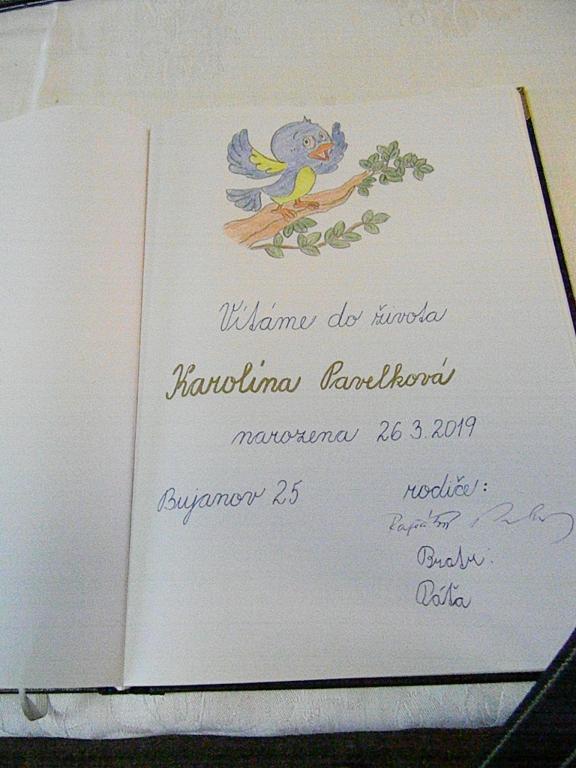 Vítáme do života
Karolína Pavelková
narozena 26 3.2019
Bujanov 25
rodiče:
Bratr:
Páťa